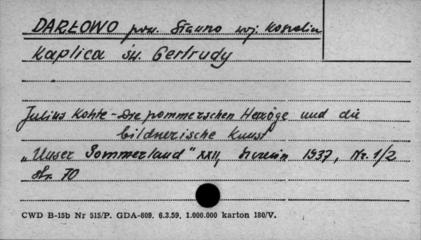 DARŁOWO pow. Sławno woj. Koszalin
Kaplica św. Gertrudy
Julius Kohte - Die pommerschen Herzöge und die
bildnerische Kunst
„Unser Pommerland" XXII, Szczecin 1937, Nr. 1/2
str. 70
CWD B-15b Nr 515/P. GDA-609. 6.3.59. 1.000.000 karton 180/V.